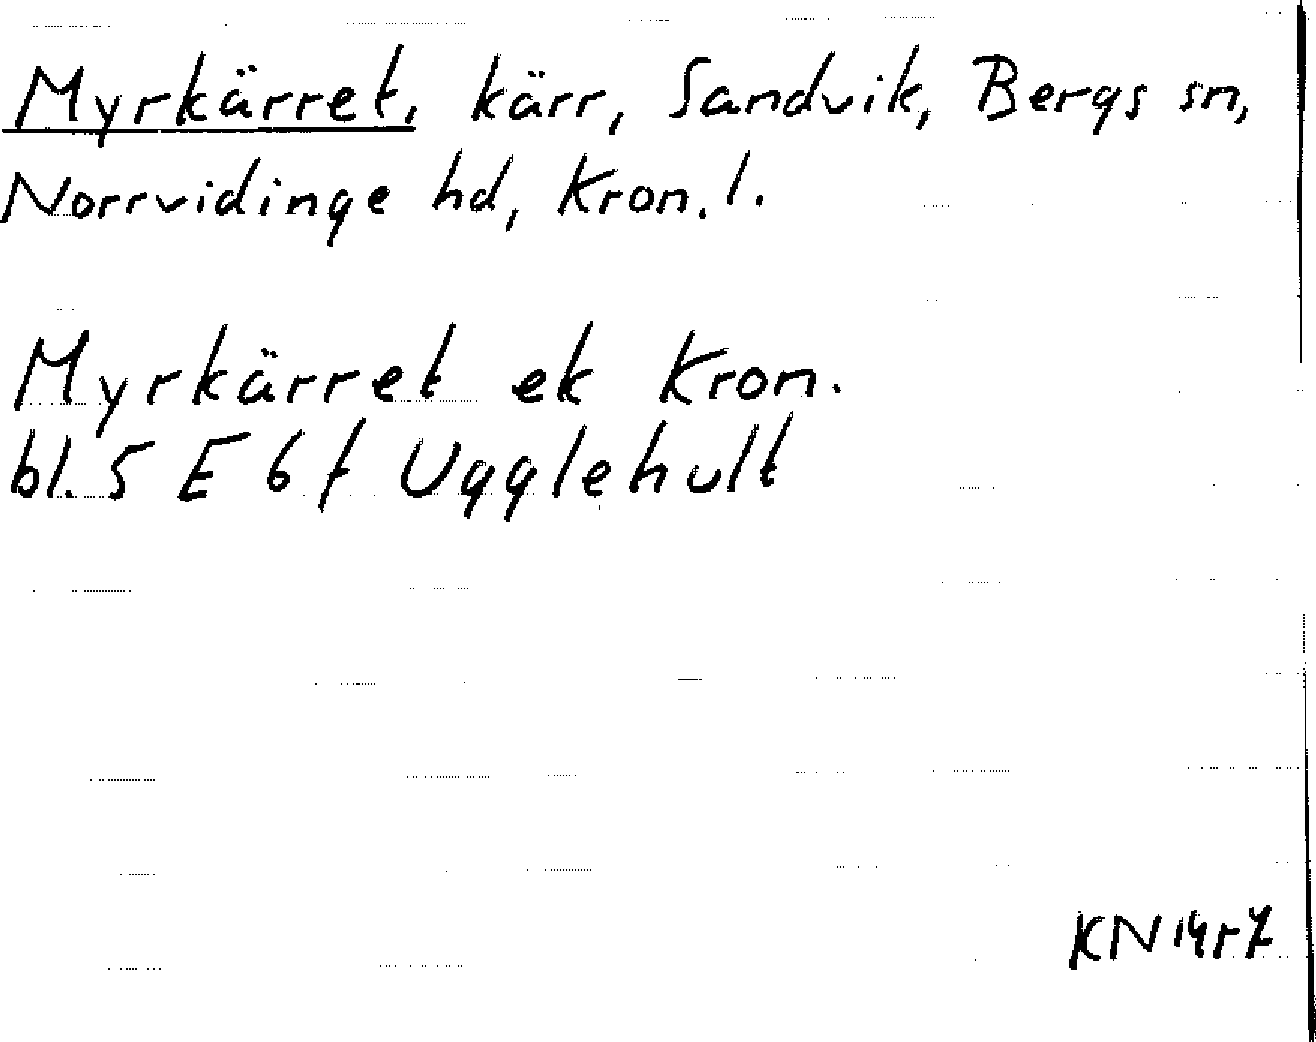 Myrkärret, kärr, Sandvik, Bergs sn,
Norrvidinge hd, Kron. l.
Myrkärret ek Kron.
bl. 5 E 6 f Ugglehult
KN 1957